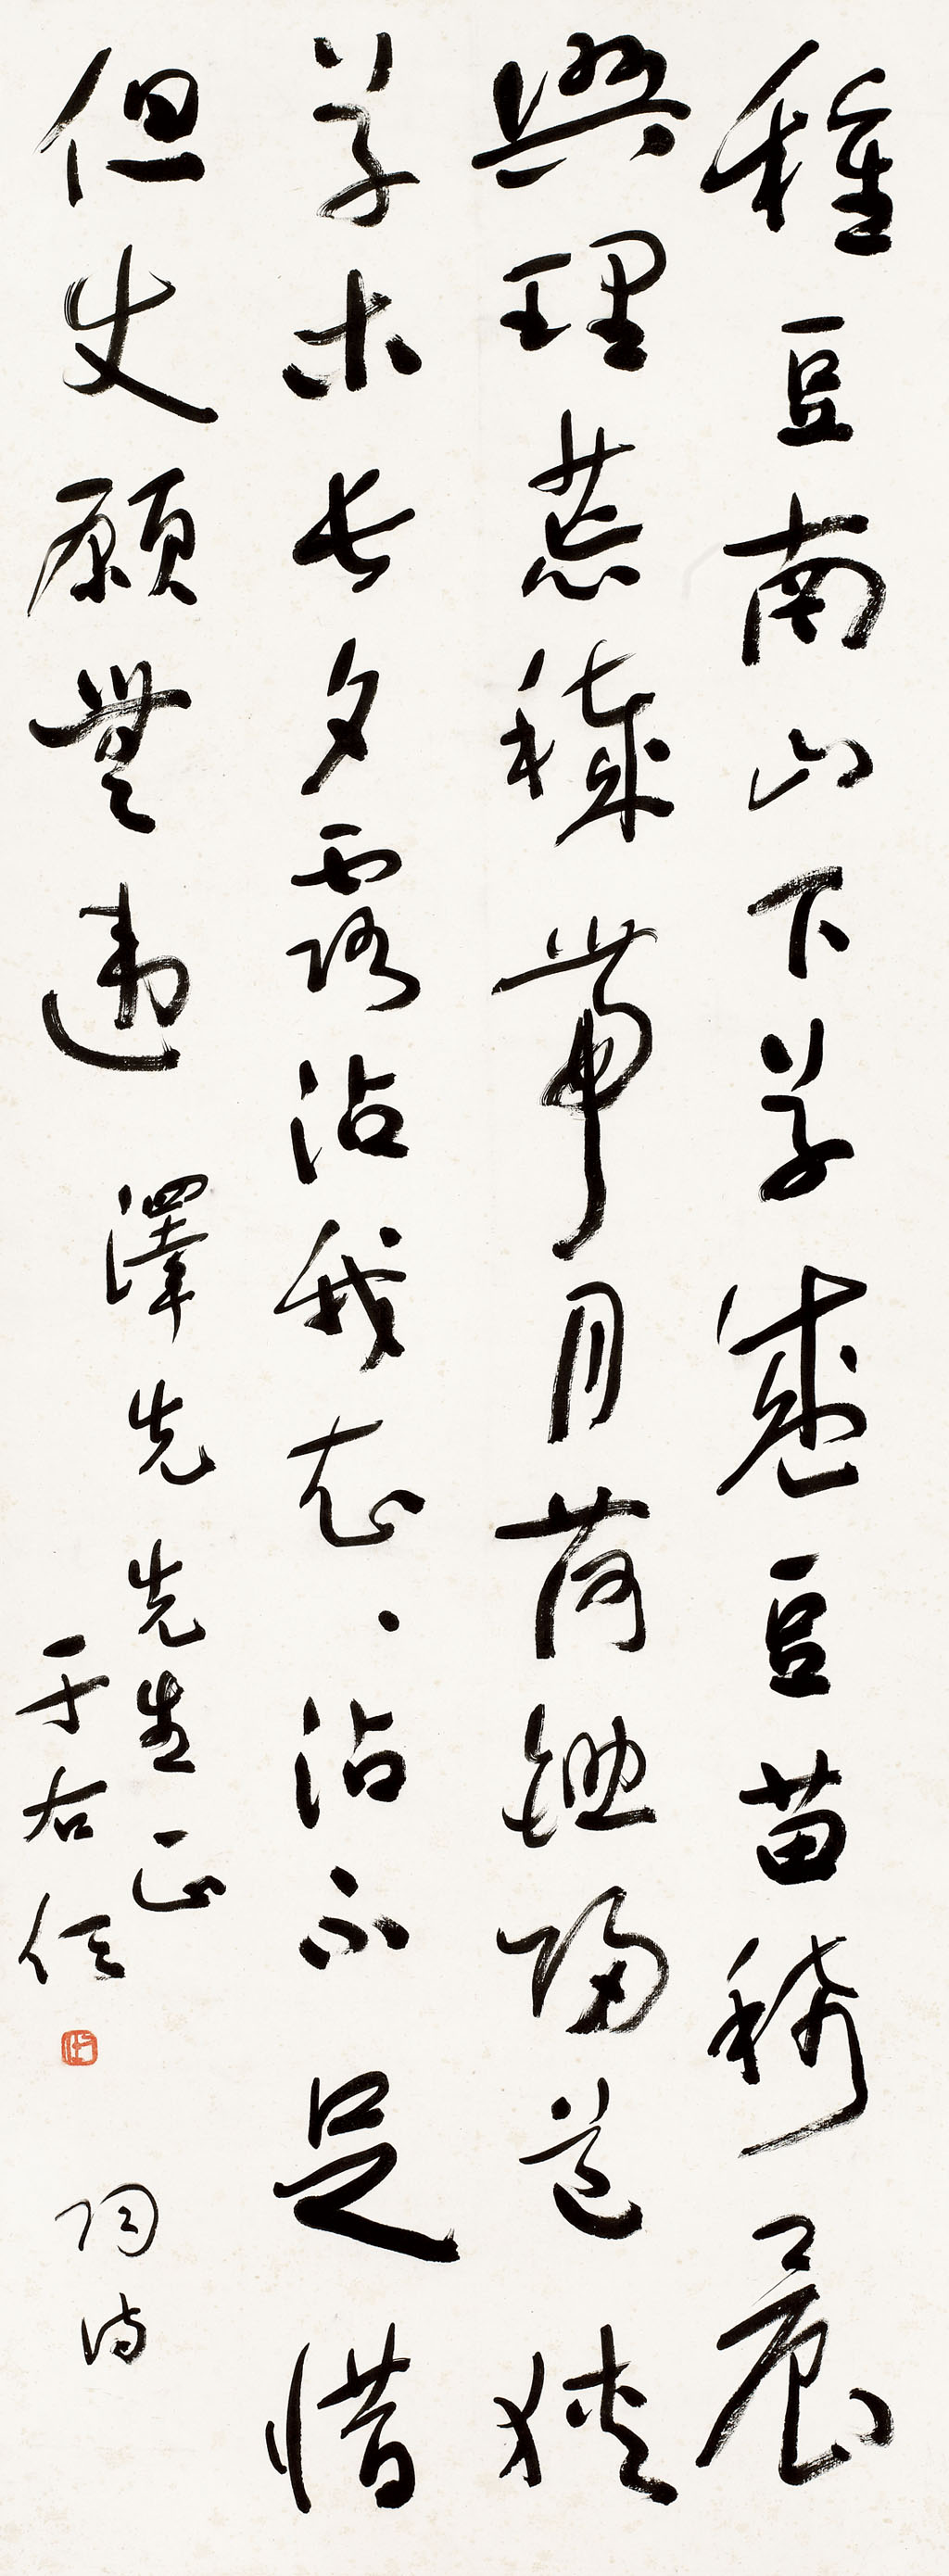 種豆南山下草盛豆苗稀晨
興理荒穢帶月荷鋤歸道狹
草木長夕露沾我衣、沾不足惜
但使願無違
澤先先生正
于右任
陶詩